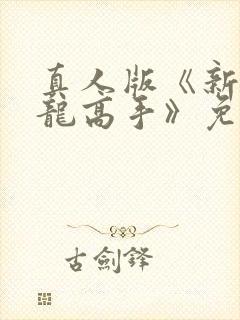 真人版《新
龍高手》免
古劍鋒